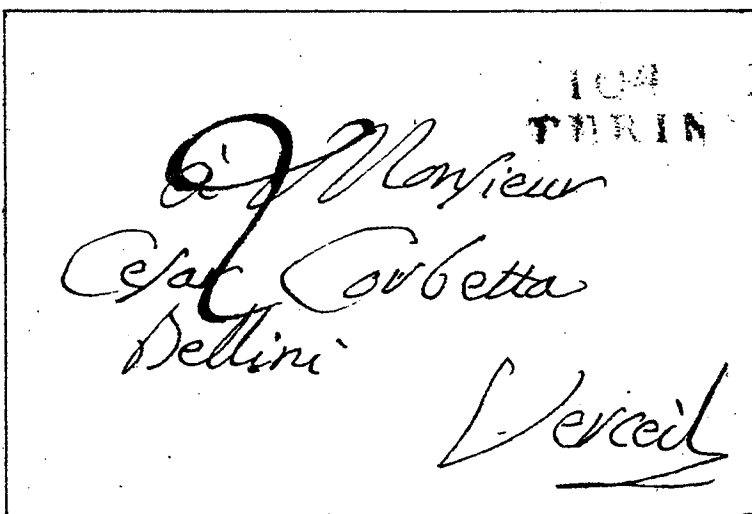 104
TURIN
à Monsieur
Cesar Corbetta
Bellini
Verceil